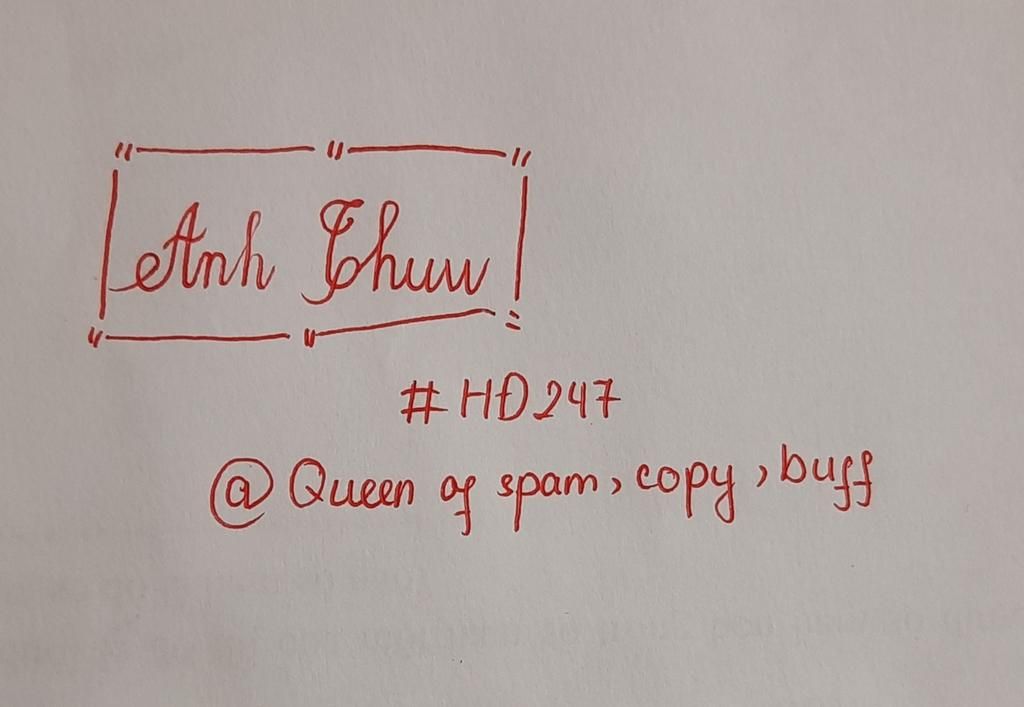 Anh Thuw
#HĐ247
@Queen of spam, copy, buff